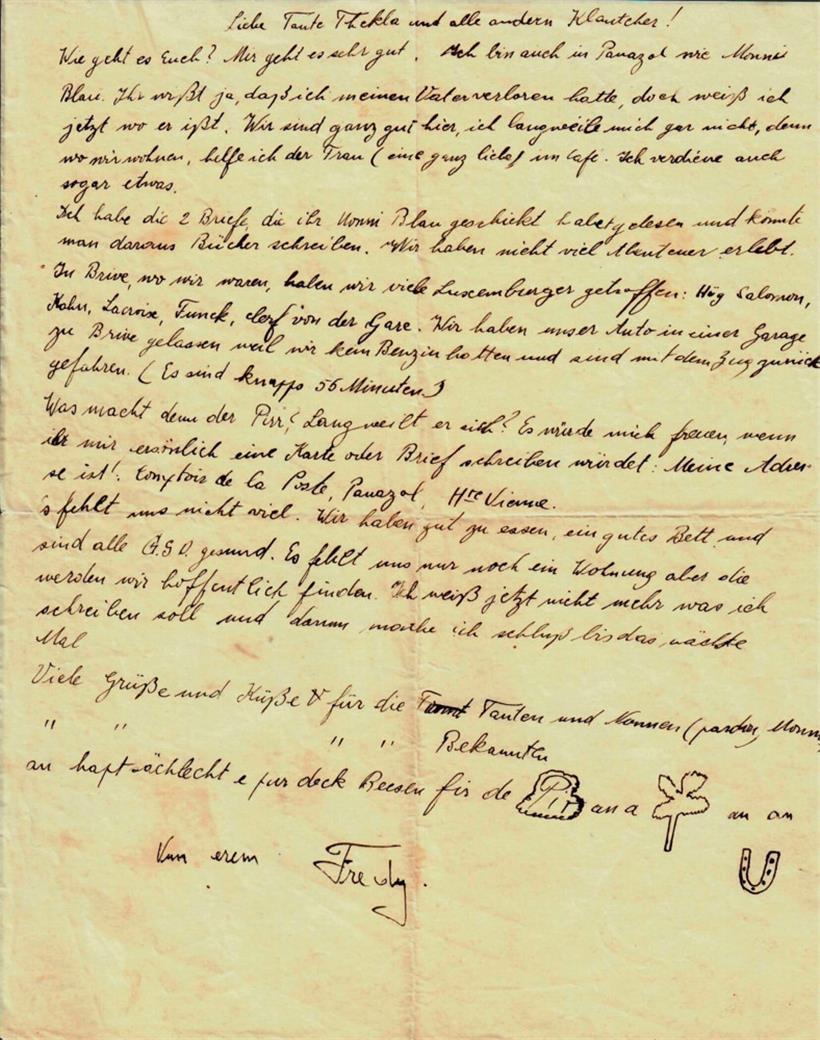 Liebe Tante Thekla und alle andern Klautcher!
Wie geht es Euch? Mir geht es sehr gut. Ich bin auch in Panazol wie Monni
Blau. Ihr wißt ja, daß ich meinen Vater verloren hatte, doch weiß ich
jetzt wo er ißt. Wir sind ganz gut hier, ich langweile mich gar nicht, denn
wo wir wohnen, helfe ich der Frau (eine ganz liebe) im Café. Ich verdiene auch
sogar etwas.
Ich habe die 2 Briefe, die ihr Monni Blau geschickt habt gelesen und könnte
man daraus Bücher schreiben. Wir haben nicht viel Abenteuer erlebt.
In Brive, wo wir waren, haben wir viele Luxemburger getroffen: Hug Salomon,
Kahn, Lacroix, Funck, Cerf von der Gare. Wir haben unser Auto in einer Garage
zu Brive gelassen weil wir kein Benzin hatten und sind mit dem Zug zurück
gefahren. (Es sind knapps 56 Minuten)
Was macht denn der Pirr? Langweilt er sich? Es würde mich freuen, wenn
ihr mir ersönlich eine Karte oder Brief schreiben würdet: Meine Adres-
se ist!: Comptoir de la Poste, Panazol, Hte Vienne.
's fehlt uns nicht viel. Wir haben gut zu essen, ein gutes Bett und
sind alle G.S.D. gesund. Es fehlt uns nur noch ein Wohnung aber die
werden wir hoffentlich finden. Ich weiß jetzt nicht mehr was ich
schreiben soll und darum mache ich schluß bis das nächste
Mal
Viele Grüße und Küße für die Tanten und Nonnen (pardon, Monni
" " " " Bekannten
an haptsächlecht e fur deck Beesen fir de Pir an a an an
Vun erem Fredy.